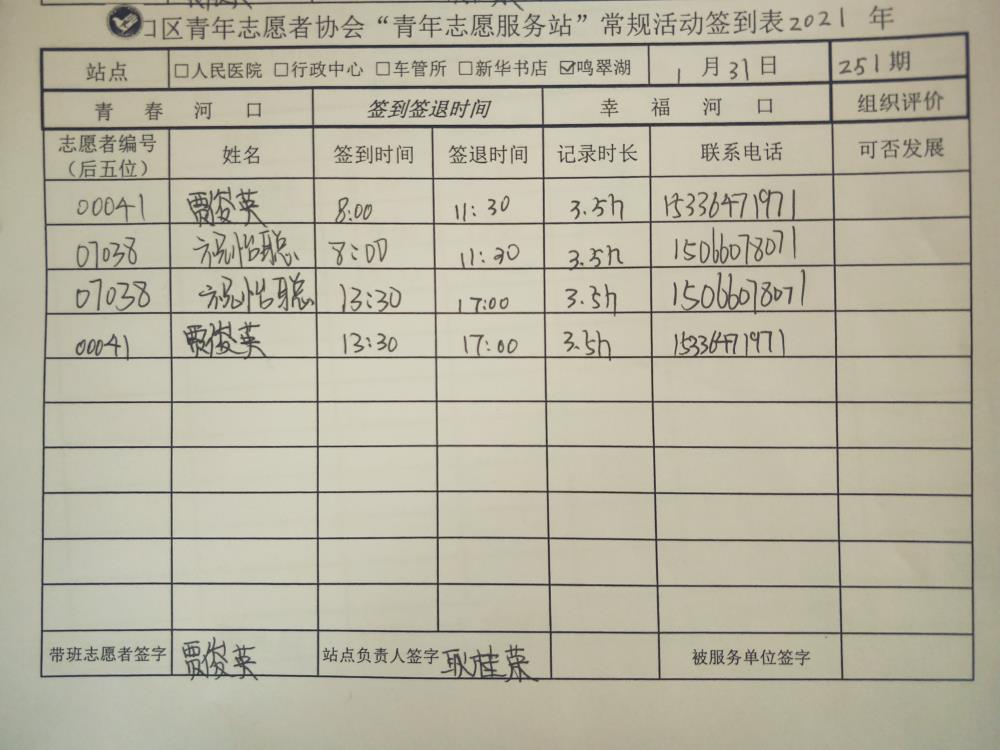 口区青年志愿者协会“青年志愿服务站”常规活动签到表2021年
站点 □人民医院 □行政中心 □车管所 □新华书店 ☑鸣翠湖 1月31日 251期
青春河口 签到签退时间 幸福河口 组织评价
志愿者编号（后五位） 姓名 签到时间 签退时间 记录时长 联系电话 可否发展
00041 贾俊英 8:00 11:30 3.5h 15336471971
07038 冯怡聪 8:00 11:30 3.5h 15066078071
07038 冯怡聪 13:30 17:00 3.5h 15066078071
00041 贾俊英 13:30 17:00 3.5h 15336471971
带班志愿者签字 贾俊英 站点负责人签字 耿桂荣 被服务单位签字